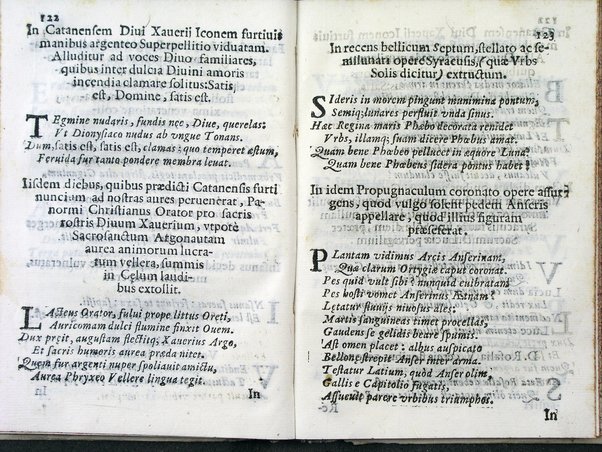 122
In Catanensem Diui Xauerij Iconem furtiuis
manibus argenteo Superpellitio viduatam.
Alluditur ad voces Diuo familiares,
quibus inter dulcia Diuini amoris
incendia clamare solitus: Satis
est, Domine, satis est.
TEgmine nudaris, fundis nec, Diue, querelas:
Vt Dionysiaco nudus ab vngue Tonans.
Dum, satis est, satis est, clamas: quo temperet æstum,
Feruida fur tanto pondere membra leuat.
Iisdem diebus, quibus prædicti Catanensis furti
nuncium ad nostras aures peruenerat, Pa-
normi Christianus Orator pro sacris
rostris Diuum Xauerium, vtpotè
Sacrosanctum Argonautam
aurea animorum lucra-
tum vellera, summis
in Cęlum laudi-
bus extollit.
LActeus Orator, fului prope littus Oreti,
Auricomam dulci flumine finxit Ouem.
Dux præit, augustam flectitq; Xauerius Argo,
Et sacris humoris aurea præda nitet.
Quem fur argenti nuper spoliauit amictu,
Aurea Phryxeo Vellere lingua tegit.
In
123
In recens bellicum septum, stellato ac se-
milunari opere Syracusis, (quæ Vrbs
Solis dicitur) extructum.
SIderis in morem pingunt munimina pontum,
Semiq; lunares perfluit vnda sinus.
Hac Regina maris Phæbo decorata renidet
Vrbs, illamq; suam dicere Phæbus amat.
Quam bene Phœbeo pellucet in æquore Luna?
Quam bene Phœbeus sidera pontus habet?
In idem Propugnaculum coronato opere assur-
gens, quod vulgò solent pedem Anseris
appellare, quod illius figuram
præseferat.
PLantam vidimus Arcis Anserinam,
Qua clarum Ortygiæ caput coronat.
Pes quid vult sibi? nunquid culbratam
Pes hosti vomet Anserinus Ætnam?
Lętatur fluuijs niuosus ales:
Martis sanguineas timet procellas,
Gaudens se gelidis beare spumis.
Ast omen placet: albus auspicato
Bellonę strepit Anser inter arma.
Testatur Latium, quòd Anser olim,
Gallis e Capitolio fugatis,
Assueuit parere vrbibus triumphos.
In